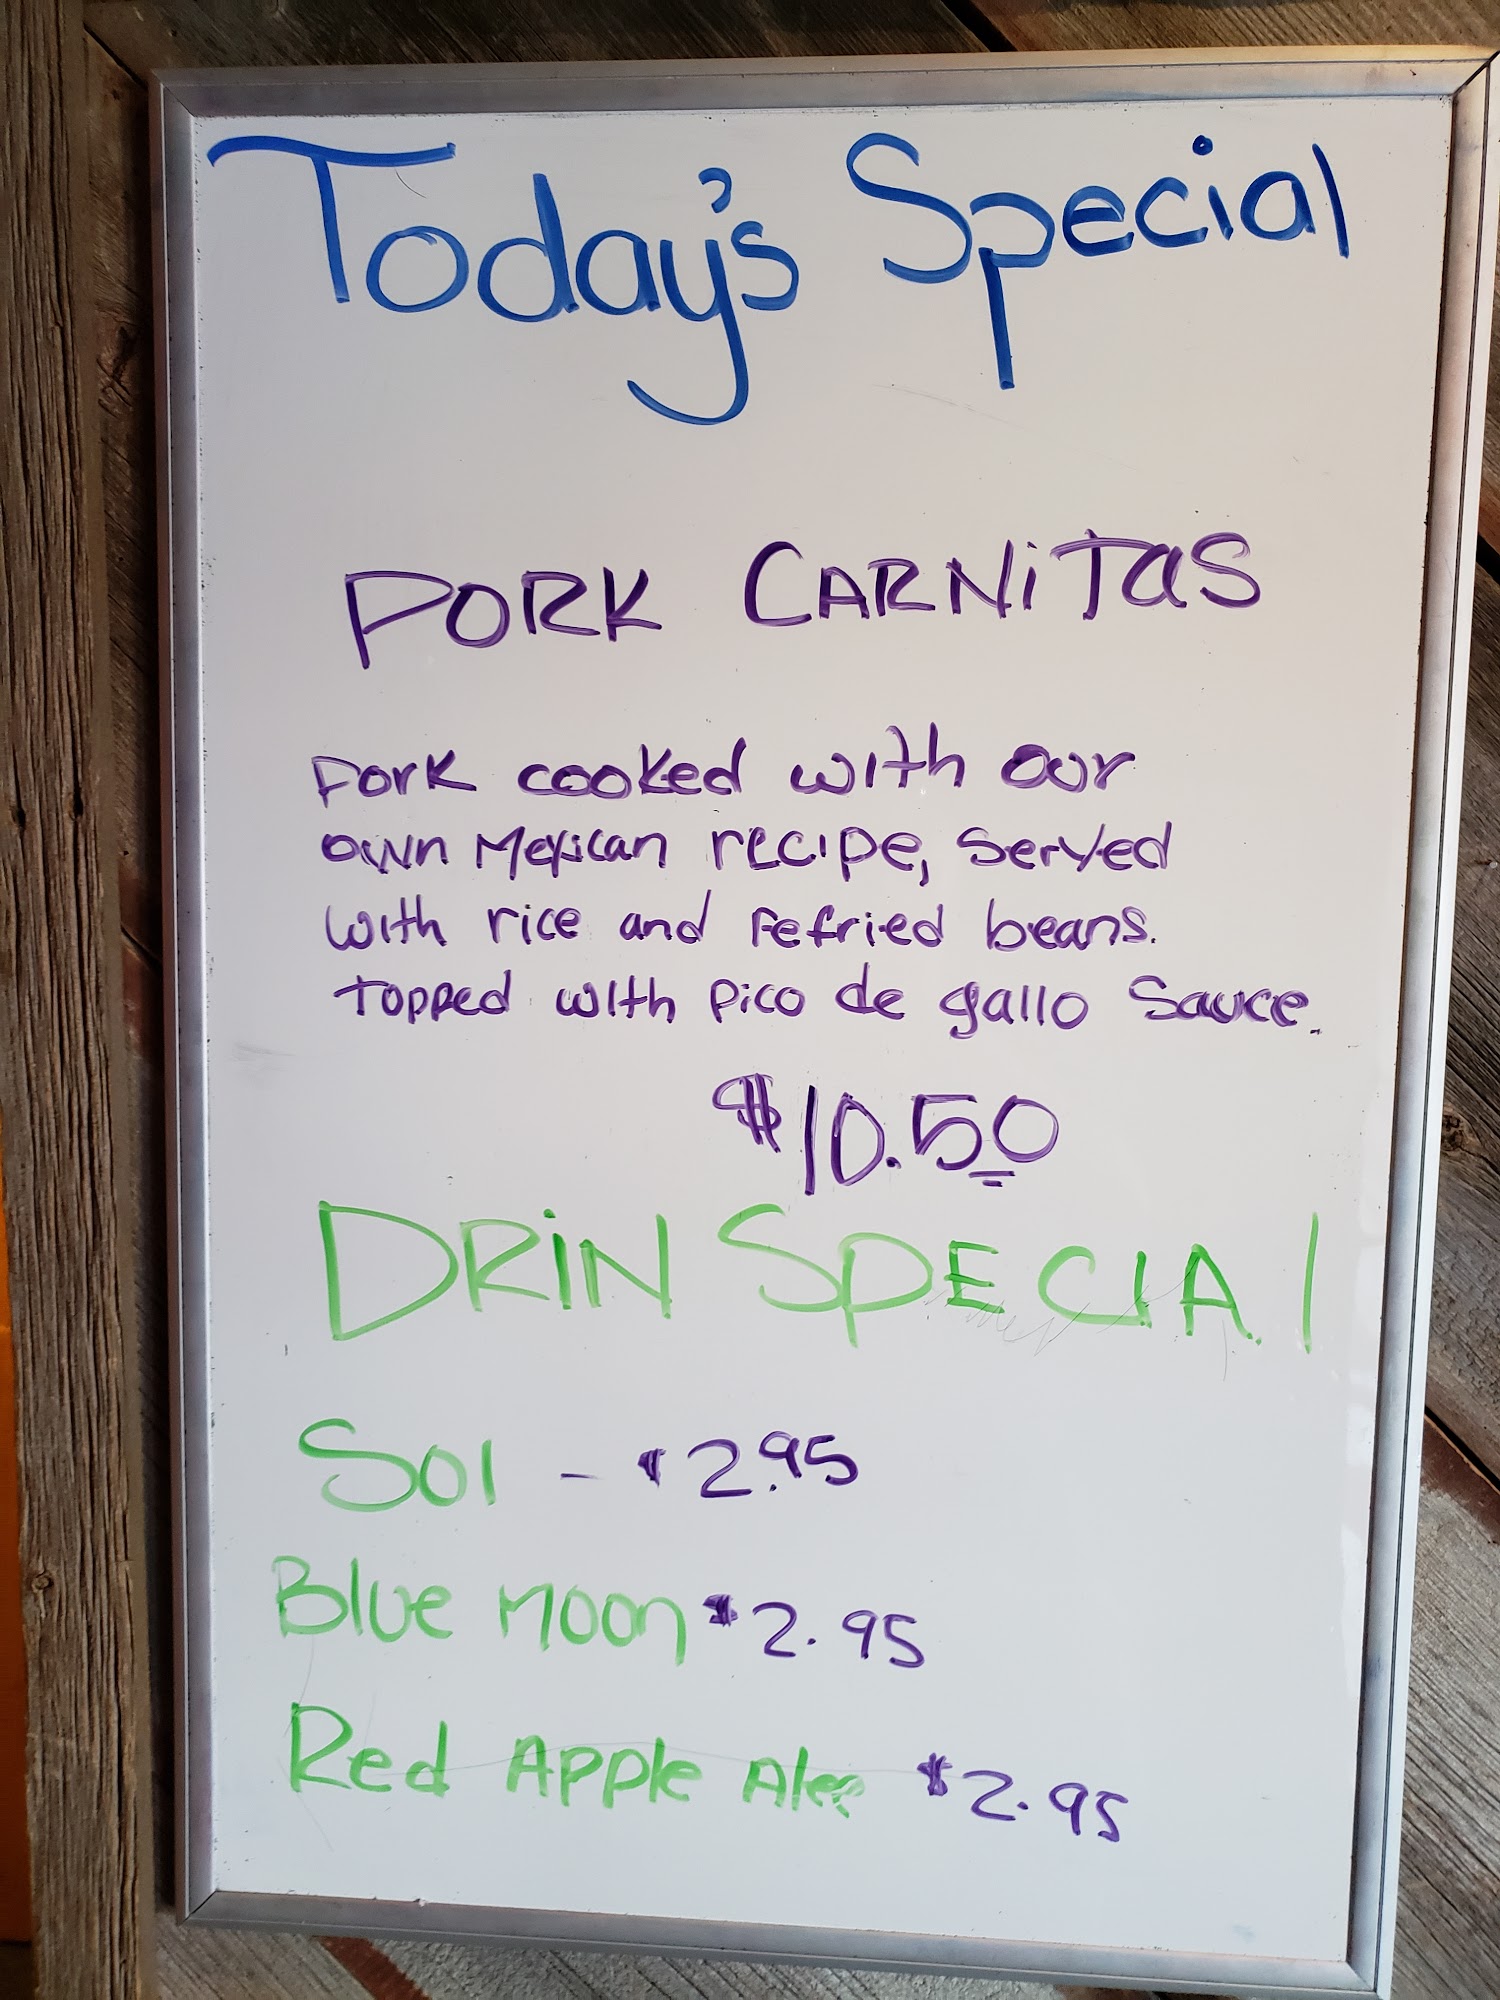 Today's Special
PORK CARNiTaS
Pork cooked with our
own Mexican recipe, Served
with rice and refried beans.
Topped with pico de gallo Sauce.
$10.50
DRiN SPECIAl
Sol - $2.95
Blue Moon $2.95
Red Apple Ale $2.95